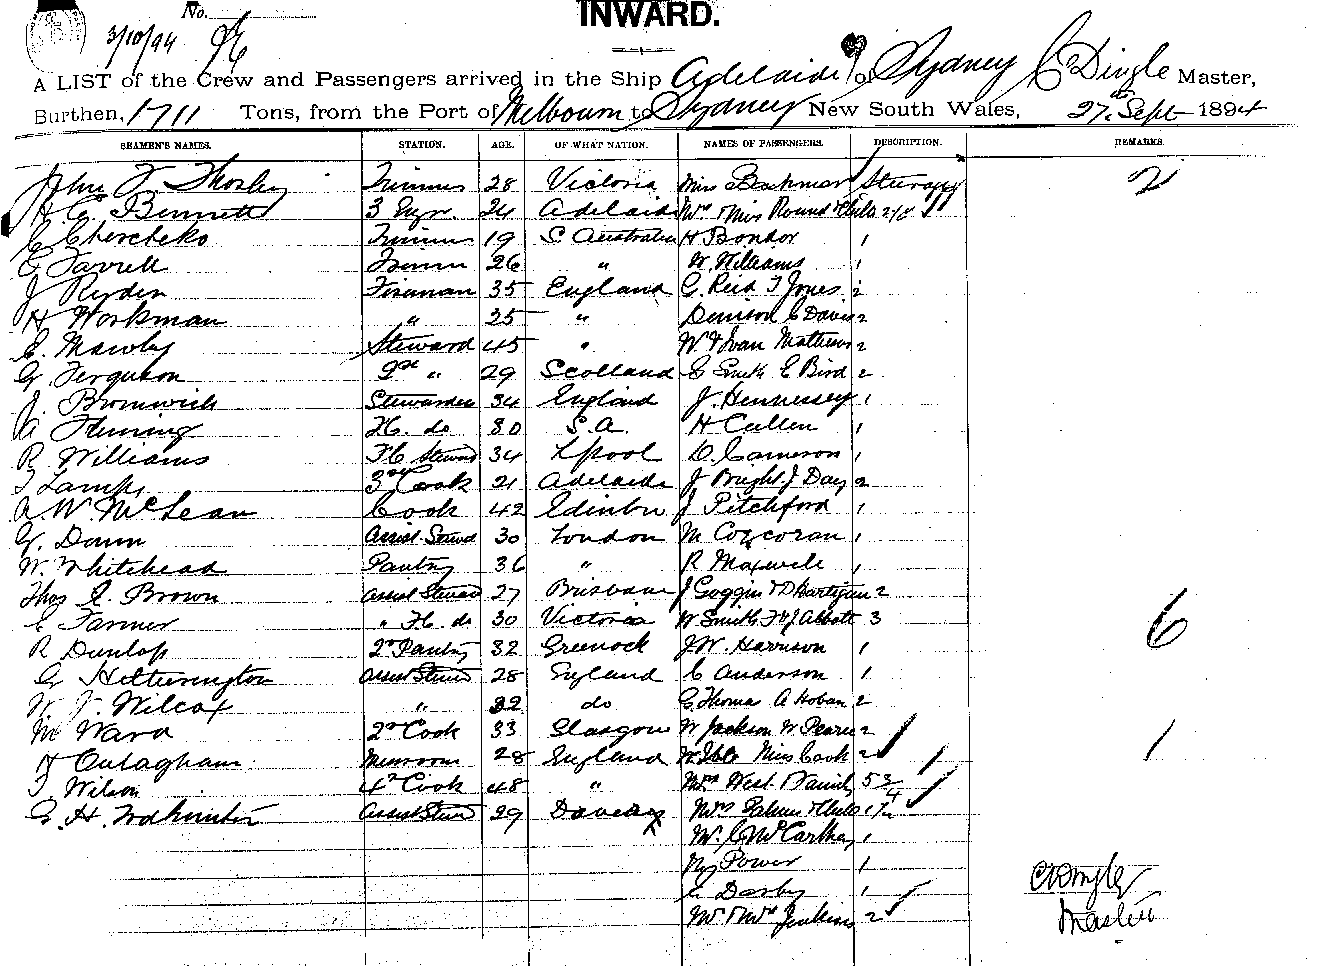 No.
INWARD.
3/10/94
A LIST of the Crew and Passengers arrived in the Ship Adelaide of Sydney C Dingle Master,
Burthen, 1711 Tons, from the Port of Melbourn to Sydney New South Wales, 27th Sept 1894
SEAMEN'S NAMES. STATION. AGE. OF WHAT NATION. NAMES OF PASSENGERS. DESCRIPTION. REMARKS.
John Thorley Trimmer 28 Victoria Miss 2
Bennett 3 Engr. 24 Adelaide Mrs Miss Round
Trimmer 19 S Australia H
Farrell Trimmer 26 " W. Williams 1
J Ryden Fireman 35 England C. Reid T Jones 2
H Workman " 25 " Denison C Davis 2
C. Mawby Steward 45 " W & Evan Mathews 2
G Ferguson 2nd " 29 Scotland C Smith E Bird 2
J. Bromwich Stewardess 34 England J. Hennessey 1
A Fleming do 30 S.A. H Cullen 1
R Williams 34 Lpool D. Cameron 1
3rd Cook 21 Adelaide J Bright J Day 2
A. W. McLean Cook 42 Edinbro J Pitchford 1
G. Dann Assist Steward 30 London M Corcoran 1
W. Whitehead Pantry 36 " R Maxwell 1
Thos Brown Assist Steward 27 Brisbane J Goggin D Hartigan 2
C Farmer " do 30 Victoria W Smith J Abbott 3 6
R Dunlop 2nd Pantry 32 Greenock J.W. Harrison 1
G Hetherington Assist Steward 28 England C Anderson 1
W. J. Wilcox " 32 do G Thomas A Hoban 2
M Ward 2nd Cook 33 Glasgow W Jackson W 2
28 England Miss Cook 2 1
T Wilson 4th Cook 48 " Mrs West
G. H. Assist Steward 29 Mrs
Mr. C McCarthy 1
Power 1
C Darby 1
Mr & Mrs Jenkins 2
C Dingle
Master